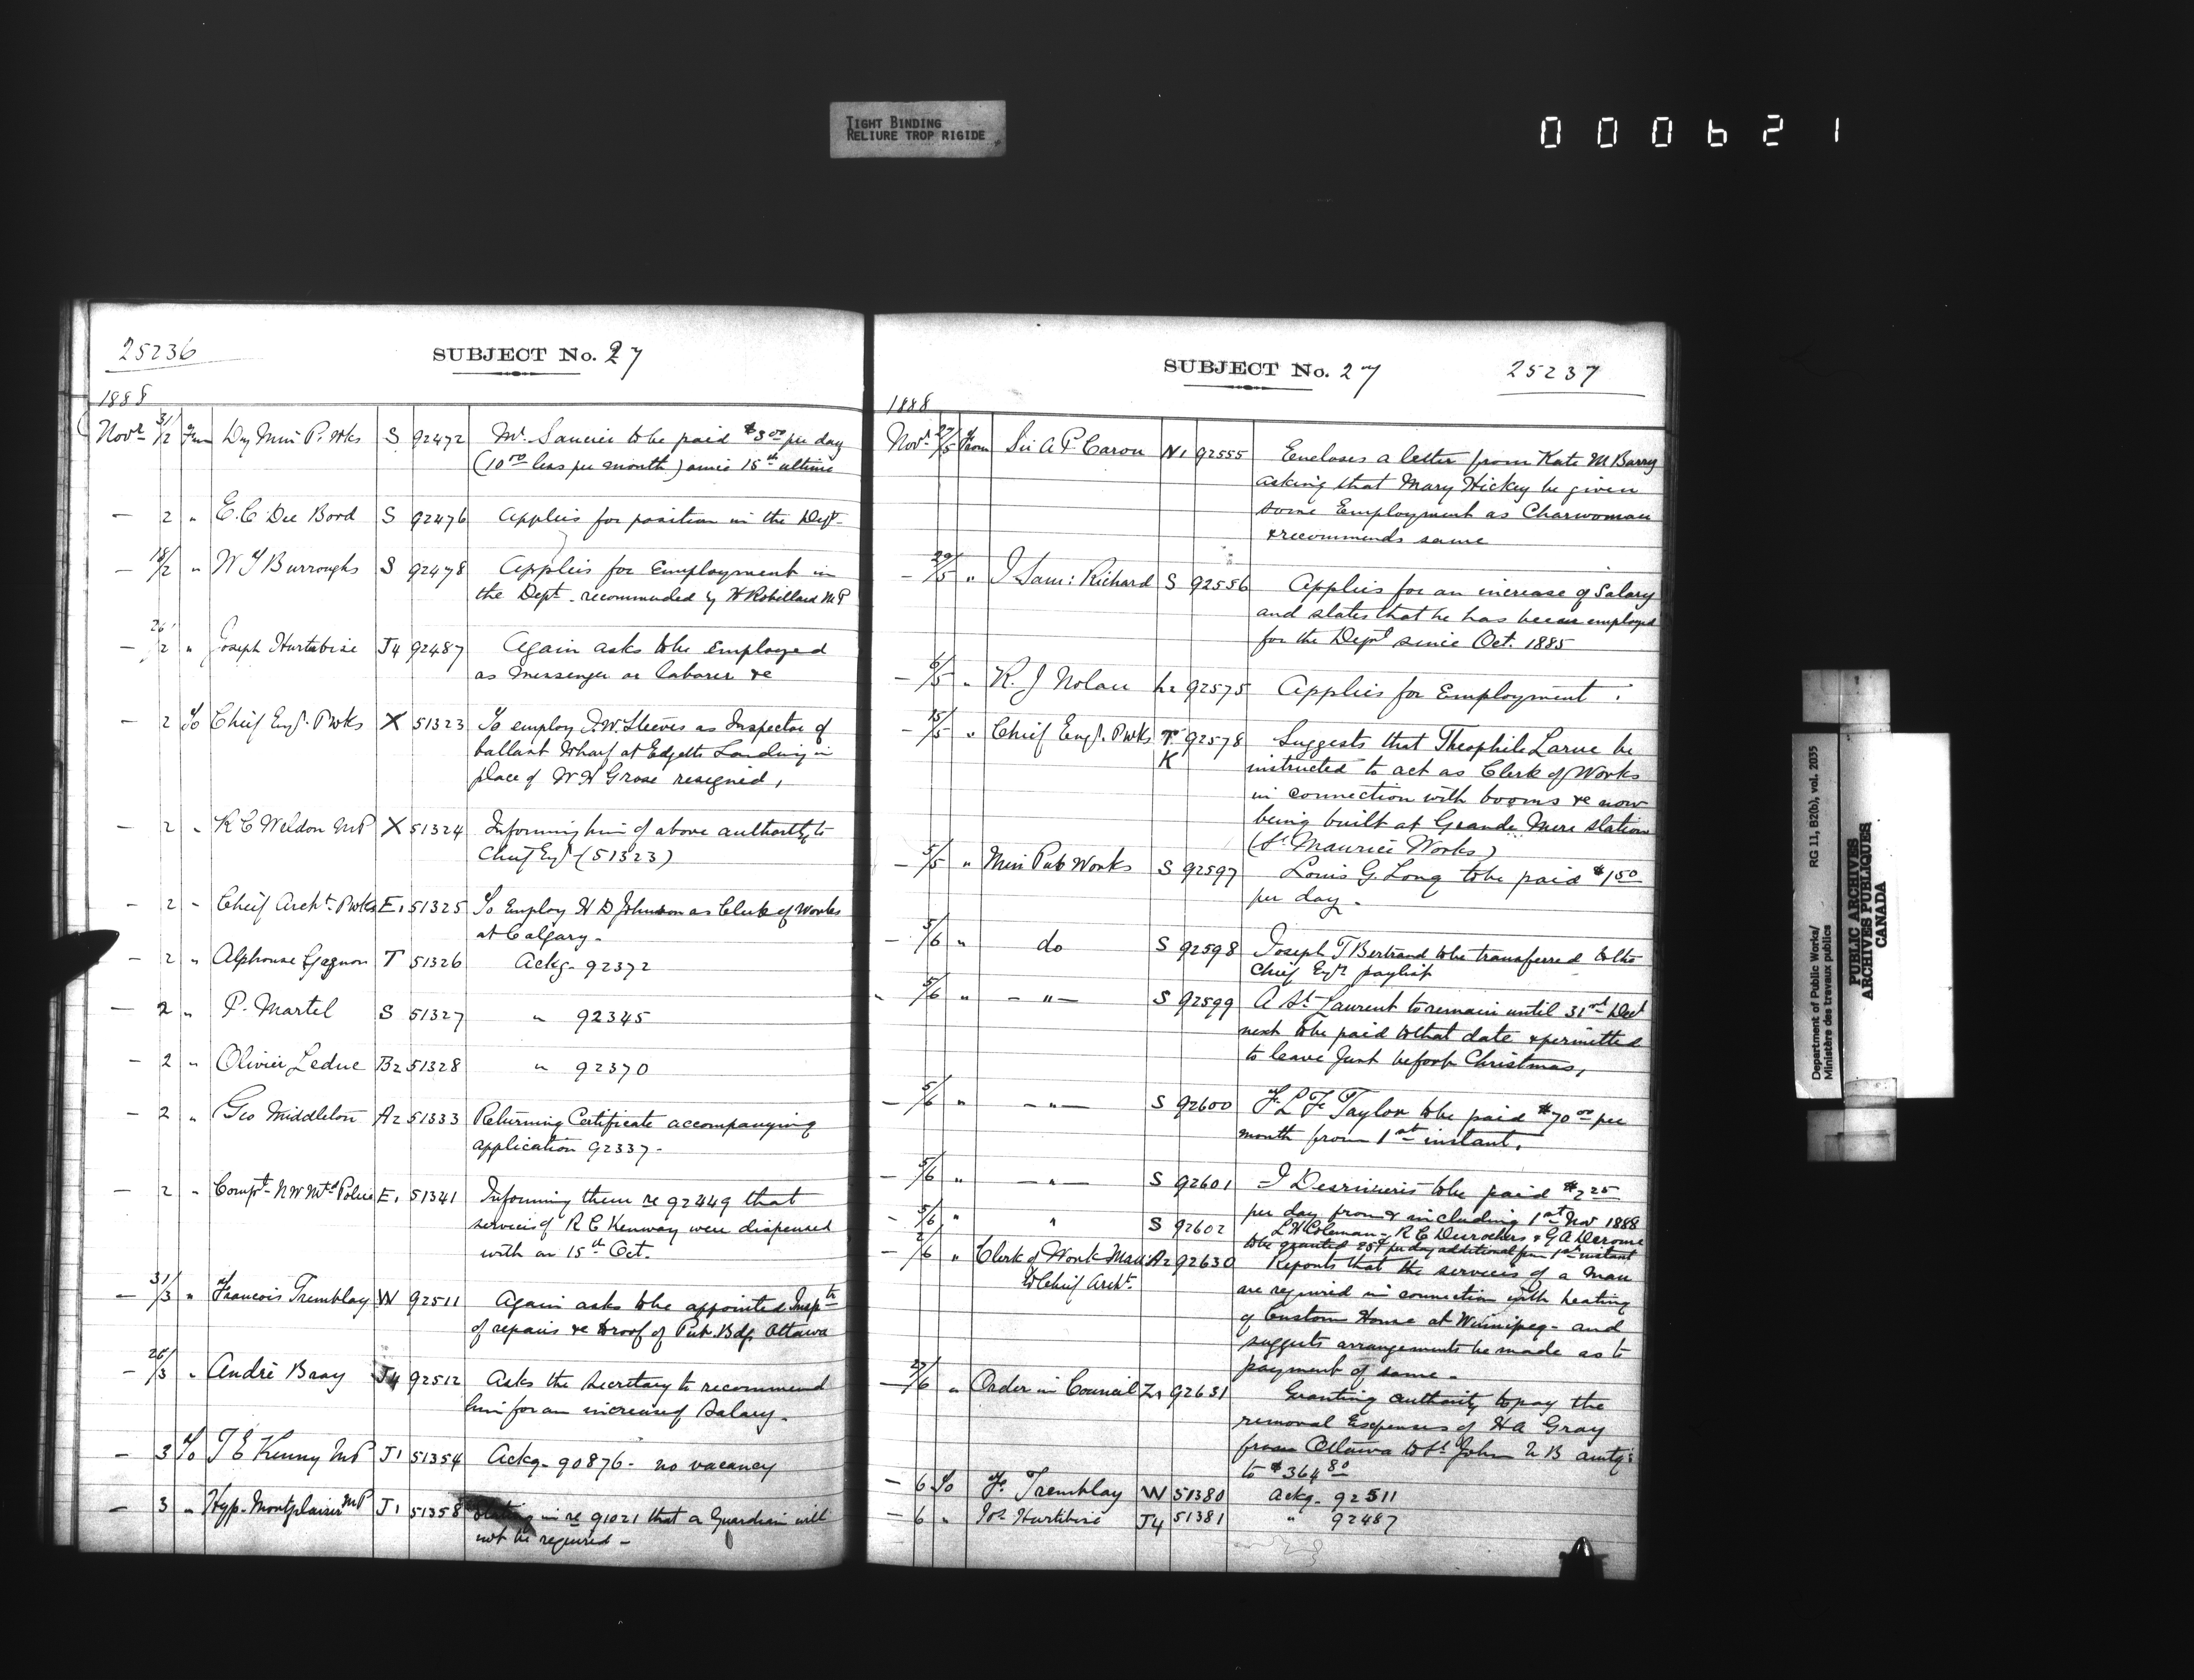 TIGHT BINDING
RELIURE TROP RIGIDE
000621
25236
SUBJECT No. 27
1888
Novr 31/2 From Dy Min P. Wks S 92472 Mr. Saucier to be paid $3.00 per day
(10.00 less per month) since 15th ultimo
— 2 " E. C. Dee Bord S 92476 Applies for position in the Dept.
— 18/2 " W J Burroughs S 92478 Applies for Employment in
the Dept. recommended by H Robillard MP
— 26/2 " Joseph Hurtubise J4 92487 Again asks to be employed
as Messenger or laborer &c
— 2 To Chief Engr. P Wks X 51323 To employ J.W. Steeves as Inspector of
ballast Wharf at Edgetts Landing in
place of W H Grose resigned,
— 2 " R C Weldon MP X 51324 Informing him of above authority to
Chief Engr (51323)
— 2 " Chief Archt. P Wks E1 51325 To Employ H D Johnson as Clerk of Works
at Calgary.
— 2 " Alphonse Gagnon T 51326 Ackg. 92372
— 2 " P. Martel S 51327 " 92345
— 2 " Olivier Leduc B2 51328 " 92370
— 2 " Geo Middleton A2 51333 Returning Certificate accompanying
application 92337.
— 2 " Compt. N W Mtd Police E1 51341 Informing them re 92449 that
services of R C Kenway were dispensed
with on 15th Oct.
— 31/3 " Francois Tremblay W 92511 Again asks to be appointed Insptr
of repairs &c to roof of Pub. Bdg. Ottawa
— 26/3 " André Bray J4 92512 Asks the Secretary to recommend
him for an increase of Salary.
— 3 To T E Kenny MP J1 51354 Ackg. 90876. no vacancy
— 3 " Hyp. Montplaisir MP J1 51358 Stating in re 91021 that a Guardian will
not be required —
SUBJECT No. 27
25237
1888
Novr. 27/5 From Sir A P Caron N1 92555 Encloses a letter from Kate M Barry
asking that Mary Hickey be given
some Employment as Charwoman
& recommends same
— 29/5 " J Sam: Richard S 92556 Applies for an increase of Salary
and states that he has been employed
for the Dept since Oct. 1885
— 6/5 " R. J Nolan 92575 Applies for Employment.
— 15/5 " Chief Engr. P Wks T 92578 Suggests that Theophile Larue be
K instructed to act as Clerk of Works
in connection with booms &c now
being built at Grande Mere station
(St. Maurice Works)
— 5/5 " Min Pub Works S 92597 Louis G. Long to be paid $1.50
per day.
— 5/6 " do S 92598 Joseph T Bertrand to be transferred to the
Chief Engr paylist
" 5/6 " — " — S 92599 A St. Laurent to remain until 31st Dect
next to be paid to that date & permitted
to leave just before Christmas,
— 5/6 " — " — S 92600 F. L F. Taylor to be paid $70.00 per
month from 1st instant.
— 5/6 " — " — S 92601 J Desrivieris to be paid $2.25
per day from & including 1st Nov 1888
— 5/6 " " S 92602 L H Coleman — R C Desrochers & G A Derome
to be granted 25¢ per day additional from 1st instant
— 2/6 " Clerk of Work Man A2 92630 Reports that the services of a man
to Chief Archt. are required in connection with heating
of Custom House at Winnipeg — and
suggests arrangements be made as to
payment of same.
— 27/6 " Order in Council 92631 Granting authority to pay the
removal Expenses of H A Gray
from Ottawa to St John N B amtg:
to $364.80
— 6 To F. Tremblay W 51380 Ackg. 92511
— 6 " Jos. Hurtibise J4 51381 " 92487
Department of Public Works/
Ministère des travaux publics
RG 11, B2(b), vol. 2035
PUBLIC ARCHIVES
ARCHIVES PUBLIQUES
CANADA